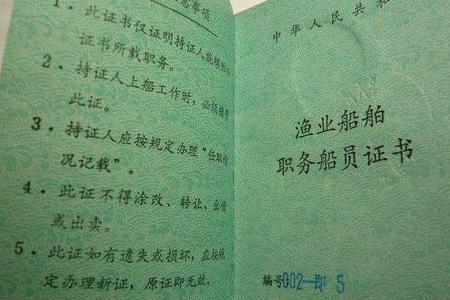 意事项
1．此证书仅证明持证人能够担任
证书所载职务。
2．持证人上船工作时，必须携带
此证。
3．持证人应按规定办理“任职情
况记载”。
4．此证不得涂改、转让、出借
或出卖。
5．此证如有遗失或损坏，应按规
定办理新证，原证即无效。
中华人民共和
渔业船舶
职务船员证书
编号002—  5